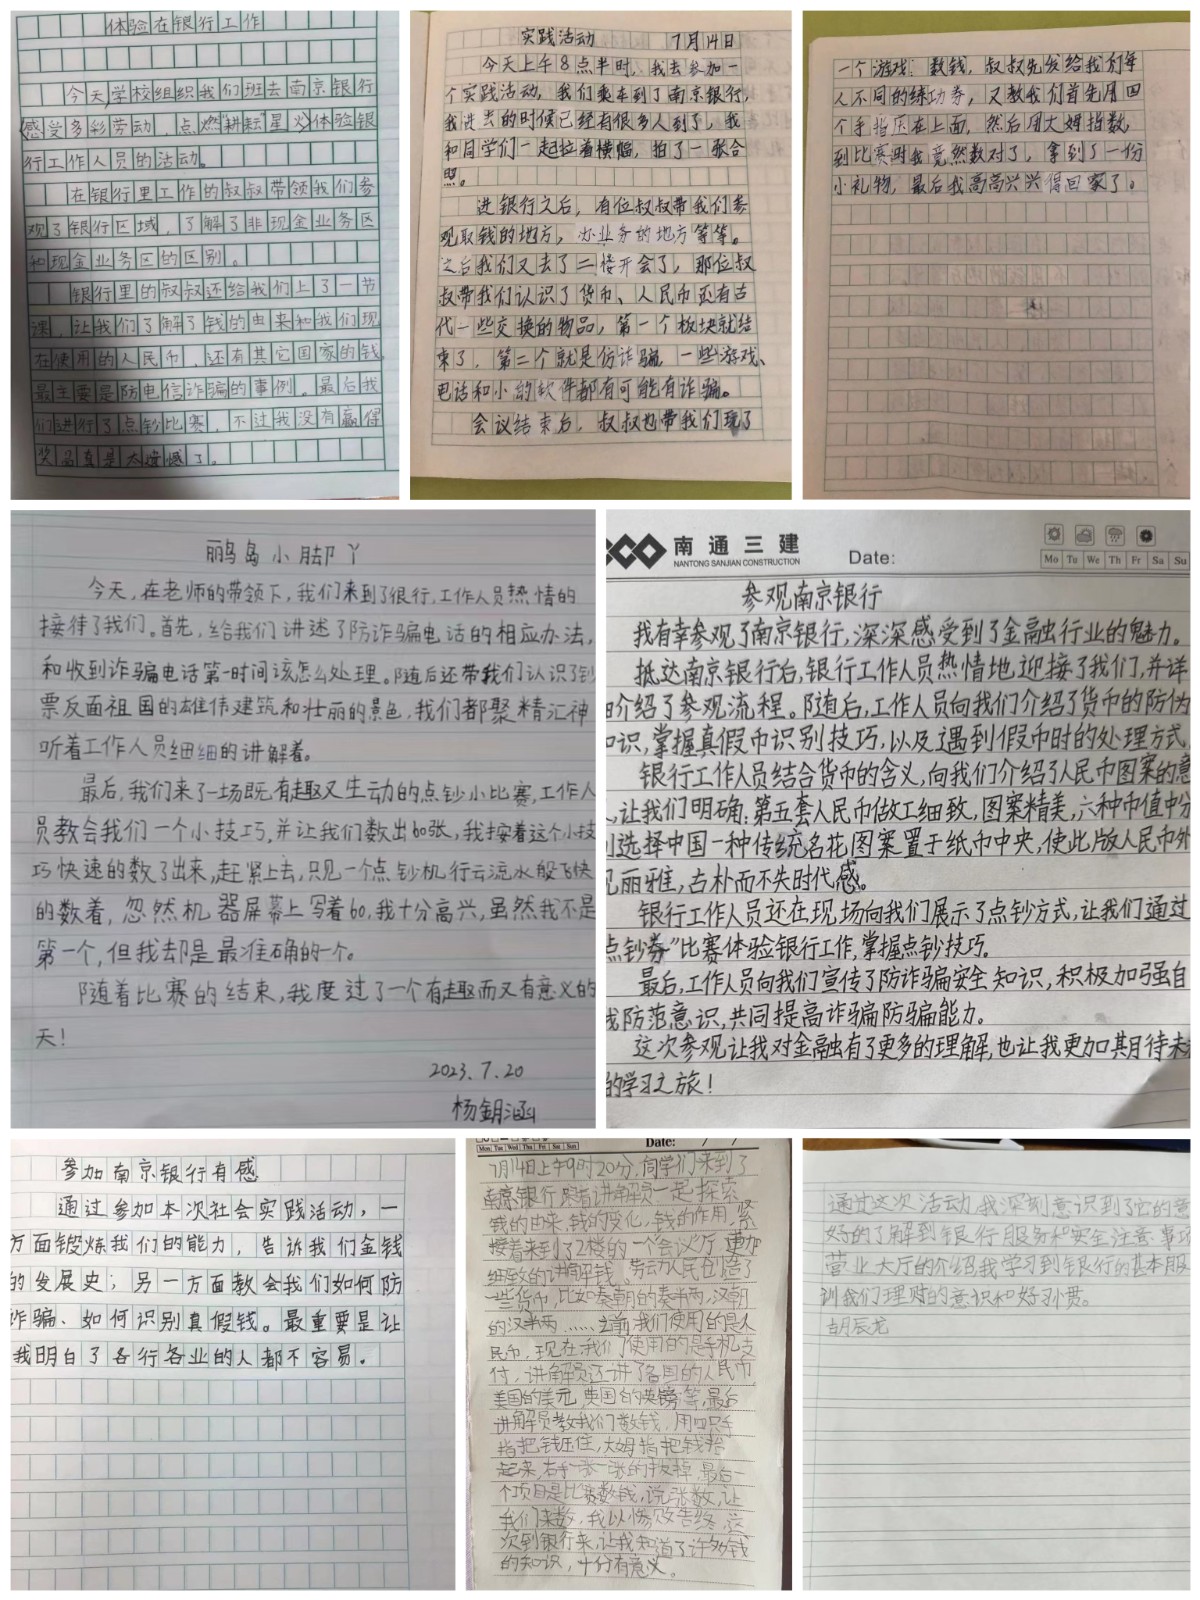 体验在银行工作
今天,学校组织我们班去南京银行
感受多彩劳动,点燃“耕耘”星火体验银
行工作人员的活动。
在银行里工作的叔叔带领我们参
观了银行区域,了解了非现金业务区
和现金业务区的区别。
银行里的叔叔还给我们上了一节
课,让我们了解了钱的由来和我们现
在使用的人民币,还有其它国家的钱,
最主要是防电信诈骗的事例。最后我
们进行了点钞比赛,不过我没有赢得
奖品真是太遗憾了。
实践活动 7月14日
今天上午8点半时,我去参加一
个实践活动,我们乘车到了南京银行,
我进去的时候已经有很多人到了,我
和同学们一起拉着横幅,拍了一张合
照。
进银行之后,有位叔叔带我们参
观取钱的地方,办业务的地方等等。
之后我们又去了二楼开会了,那位叔
叔带我们认识了货币、人民币还有古
代一些交换的物品,第一个板块就结
束了,第二个就是仿诈骗,一些游戏、
电话和小的软件都有可能有诈骗。
会议结束后,叔叔也带我们玩了
一个游戏:数钱,叔叔先发给我们每
人不同的练功券,又教我们首先用四
个手指压在上面,然后用大姆指数,
到比赛时我竟然数对了,拿到了一份
小礼物,最后我高高兴兴得回家了。
鹂岛小脚丫
今天,在老师的带领下,我们来到了很行,工作人员热情的
接待了我们。首先,给我们讲述了防诈骗电话的相应办法,
和收到诈骗电话第一时间该怎么处理。随后还带我们认识了钞
票反面祖国的雄伟建筑和壮丽的景色,我们都聚精汇神
听着工作人员细细的讲解着。
最后,我们来了一场既有趣又生动的点钞小比赛,工作人
员教会我们一个小技巧,并让我们数出60张,我按着这个小技
巧快速的数了出来,赶紧上去,只见一个点钞机行云流水般飞快
的数着,忽然机器屏幕上写着60,我十分高兴,虽然我不是
第一个,但我却是最准确的一个。
随着比赛的结束,我度过了一个有趣而又有意义的
天!
2023.7.20
杨钥涵
南通三建
NANTONG SANJIAN CONSTRUCTION
Date:
Mo Tu We Th Fr Sa Su
参观南京银行
我有幸参观了南京银行,深深感受到了金融行业的魅力。
抵达南京银行后,银行工作人员热情地迎接了我们,并详
细介绍了参观流程。随后,工作人员向我们介绍了货币的防伪
知识,掌握真假币识别技巧,以及遇到假币时的处理方式。
银行工作人员结合货币的含义,向我们介绍了人民币图案的意
,让我们明确:第五套人民币做工细致,图案精美,六种币值中分
别选择中国一种传统名花图案置于纸币中央,使此版人民币外
观丽雅,古朴而不失时代感。
银行工作人员还在现场向我们展示了点钞方式,让我们通过
点钞券”比赛体验银行工作,掌握点钞技巧。
最后,工作人员向我们宣传了防诈骗安全知识,积极加强自
我防范意识,共同提高诈骗防骗能力。
这次参观让我对金融有了更多的理解,也让我更加期待未
的学习之旅!
参加南京银行有感
通过参加本次社会实践活动,一
方面锻炼我们的能力,告诉我们金钱
的发展史;另一方面教会我们如何防
诈骗、如何识别真假钱。最重要是让
我明白了各行各业的人都不容易。
Mon Tue Wed Thu Fri Sat Sun
Date: / /
7月14日上午9时20分,同学们来到了
南京银行,跟着讲解员一起探索
钱的由来,钱的变化,钱的作用,紧
接着来到了2楼的一个“会议”厅,更加
细致的讲解钱。劳动人民创造了
一些货币,比如秦朝的秦半两,汉朝
的汉半两……之前我们使用的是人
民币,现在我们使用的是手机支
付,讲解员还讲了各国的人民币,
美国的美元,英国的英镑等,最后
讲解员教我们数钱,用四只手
指把钱压住,大姆指把钱抬
起来,右手一张一张的拨掉,最后一
个项目是比赛数钱,说张数,让
我们来数,我以惨败告终,这
次到银行来,让我知道了许多钱
的知识,十分有意义。
通过这次活动,我深刻意识到了它的意
好的了解到银行服务和安全注意事项
营业大厅的介绍我学习到银行的基本服
训我们理财的意识和好习惯。
胡辰龙